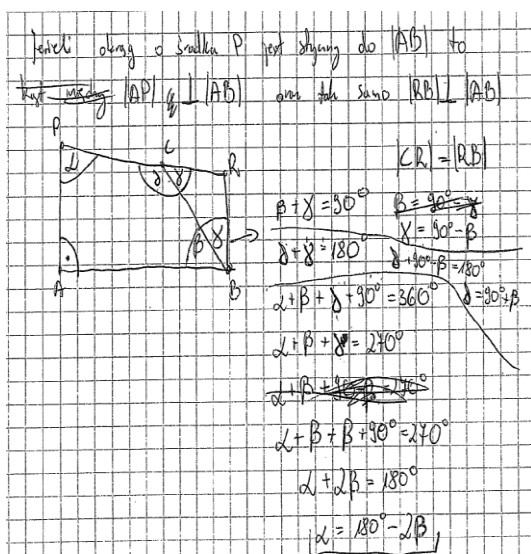 Jeżeli okrąg o środku P jest styczny do |AB| to
|AP| ⊥ |AB| oraz tak samo |RB| ⊥ |AB|
P
C
R
α
δ γ
β γ
A
B
|CR| = |RB|
β + γ = 90°
β = 90° - γ
γ = 90° - β
δ + γ = 180°
δ + 90° - β = 180°
α + β + δ + 90° = 360°
δ = 90° + β
α + β + δ = 270°
α + β + 90 - β = 270°
α + β + β + 90° = 270°
α + 2β = 180°
α = 180° - 2β